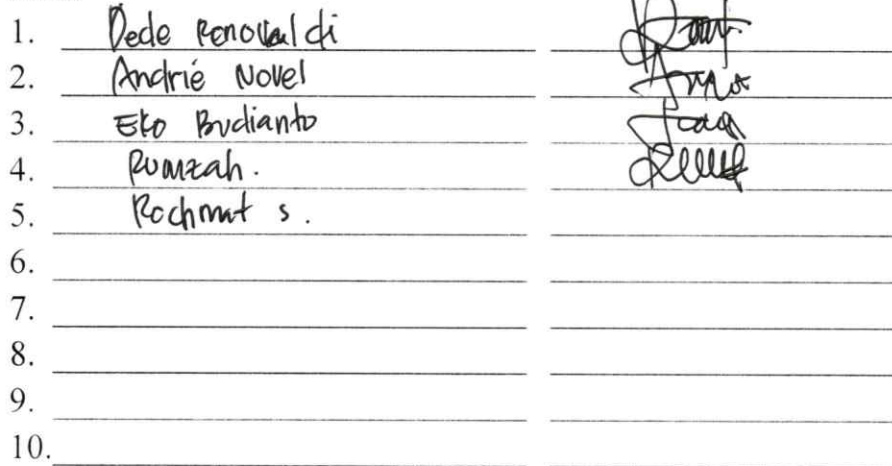 1. Dede Renovaldi
2. Andrie Novel
3. Eko Budianto
4. Rumzah.
5. Rochmat s.
6.
7.
8.
9.
10.